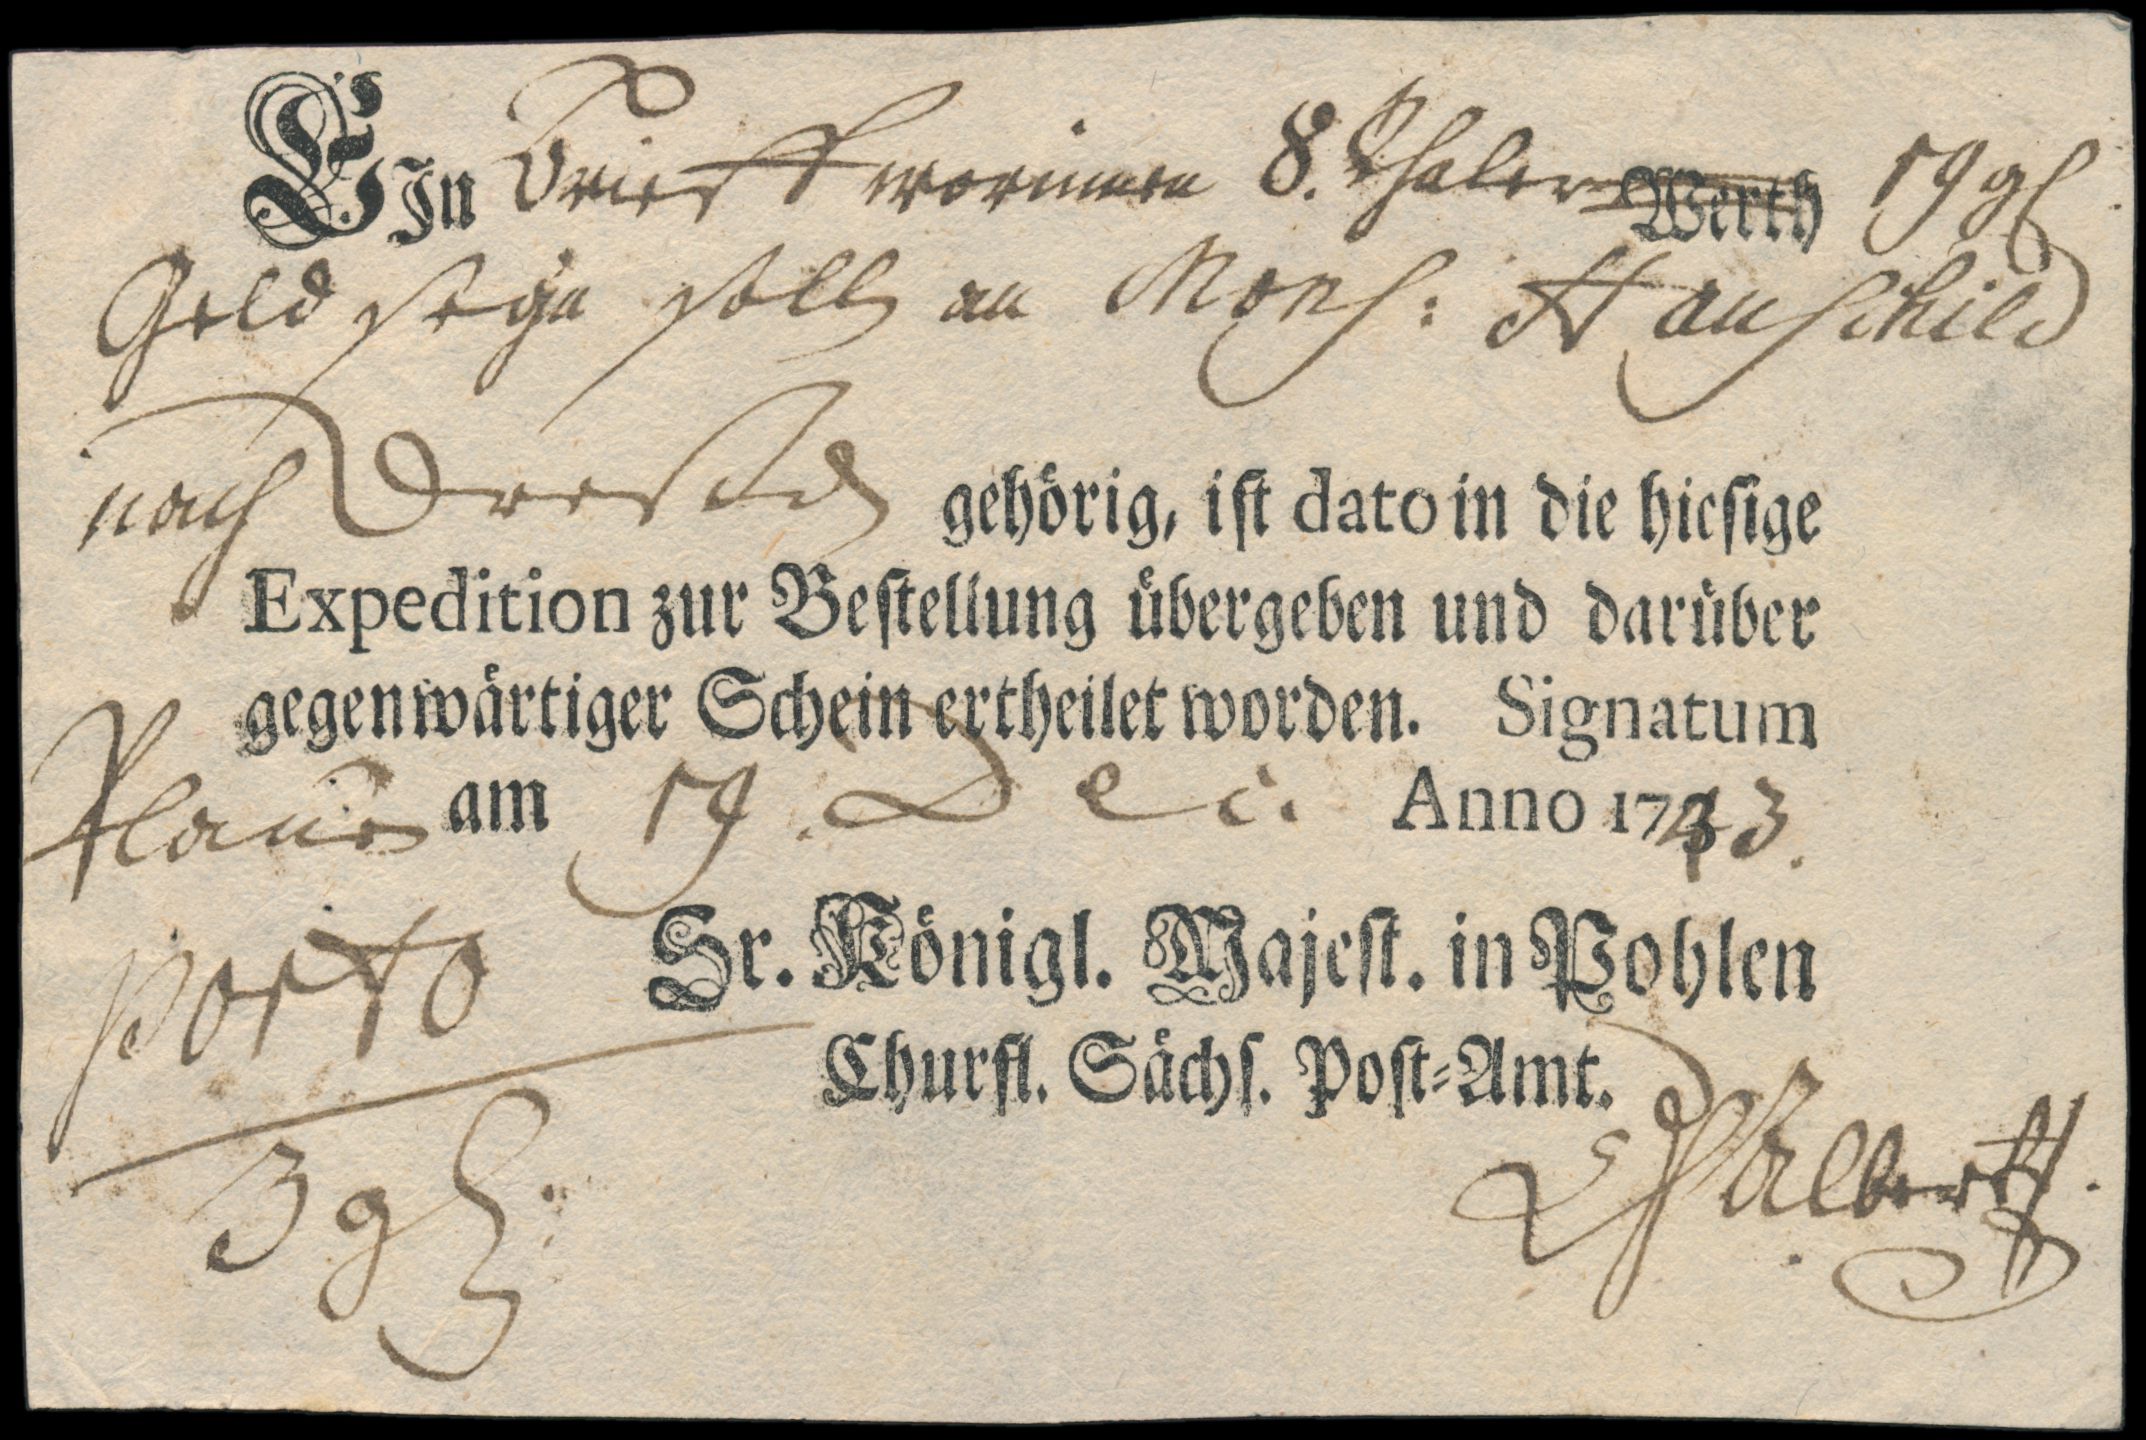 EIn Brieff worinnen 8. Thaler Werth 19 gl
Geld seyn soll an Mons: Hauschild
nach Dresden gehörig, ist dato in die hiesige
Expedition zur Bestellung übergeben und darüber
gegenwärtiger Schein ertheilet worden. Signatum
Plauen am 19. Dec. Anno 1743.
Sr. Königl. Majest. in Pohlen
Porto
Churfl. Sächs. Post-Amt.
3 gl: